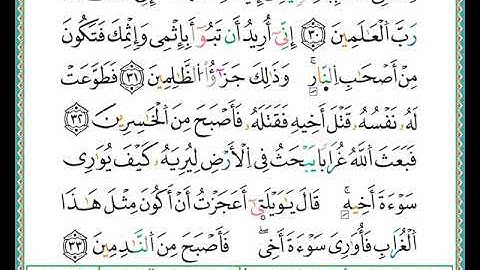 رَبَّ ٱلْعَٰلَمِينَ ٣٠ إِنِّىٓ أُرِيدُ أَن تَبُوٓأَ بِإِثْمِى وَإِثْمِكَ فَتَكُونَ
مِنْ أَصْحَٰبِ ٱلنّ۪ارِۚ وَذَٰلِكَ جَزَٰٓؤُا۟ ٱلظَّٰلِمِينَ ٣١ فَطَوَّعَتْ
لَهُۥ نَفْسُهُۥ قَتْلَ أَخِيهِ فَقَتَلَهُۥ فَأَصْبَحَ مِنَ ٱلْخَٰسِرِينَ ٣٢
فَبَعَثَ ٱللَّهُ غُرَابًا يَبْحَثُ فِى ٱلْأَرْضِ لِيُرِيَهُۥ كَيْفَ يُوَٰرِى
سَوْءَةَ أَخِيهِۚ قَالَ يَٰوَيْلَتَىٰٓ أَعَجَزْتُ أَنْ أَكُونَ مِثْلَ هَٰذَا
ٱلْغُرَابِ فَأُوَٰرِىَ سَوْءَةَ أَخِىۖ فَأَصْبَحَ مِنَ ٱلنَّٰدِمِينَ ٣٣